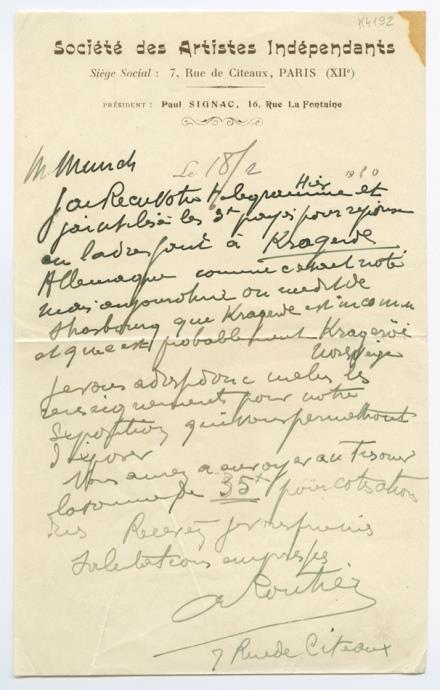 K4192
Société des Artistes Indépendants
Siège Social : 7, Rue de Citeaux, PARIS (XIIe)
PRÉSIDENT : Paul SIGNAC, 16, Rue La Fontaine
M Munch
Le 18/2 1910
J'ai Recu Votre télégramme Hier et
j'ai utilisé les 3f payés pour réponse
en l'adressant à Kragerde
Allemagne comme c'etait noté
mais aujourd'hui on me dit de
Strasbourg que Kragerde est inconnu
et que c'est probablement Krageröe
Norvège
Je vous adresse donc les
renseignements pour notre
Exposition qui vous permettront
d'exposer
Vous aurez a envoyer au Tresorier
la somme de 35f pour cotisations
Recevez je vous prie mes
Salutations empressées
7 Rue de Citeaux